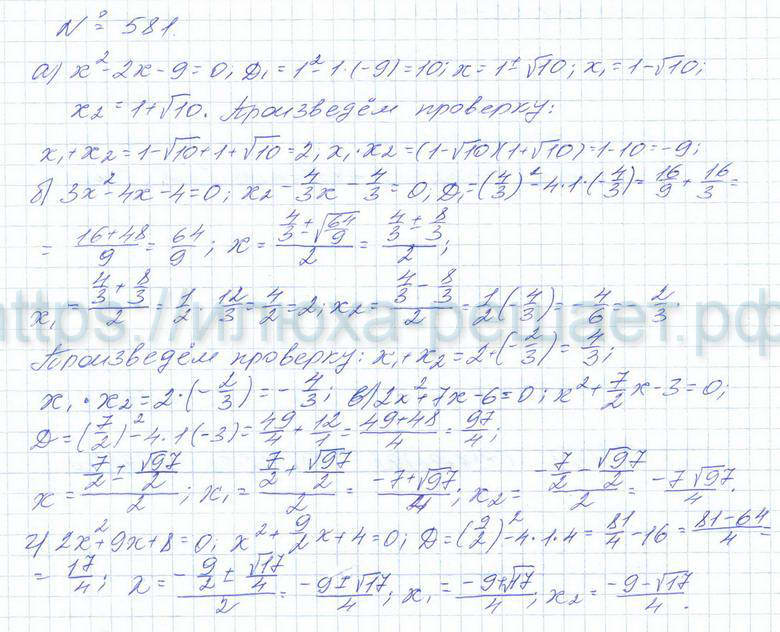 № 581.
а) x² - 2x - 9 = 0; D₁ = 1² - 1·(-9) = 10; x = 1 ± √10; x₁ = 1 - √10;
x₂ = 1 + √10. Произведём проверку:
x₁ + x₂ = 1 - √10 + 1 + √10 = 2, x₁ · x₂ = (1 - √10)(1 + √10) = 1 - 10 = -9;
б) 3x² - 4x - 4 = 0; x₂ - 4/3x - 4/3 = 0; D₁ = (4/3)² - 4·1·(-4/3) = 16/9 + 16/3 =
= (16+48)/9 = 64/9; x = (4/3 ± √(64/9))/2 = (4/3 ± 8/3)/2;
x₁ = (4/3 + 8/3)/2 = 1/2 · 12/3 = 4/2 = 2; x₂ = (4/3 - 8/3)/2 = 1/2(-4/3) = -4/6 = -2/3.
https://илюха-решает.рф
Произведём проверку: x₁ + x₂ = 2 + (-2/3) = 4/3;
x₁ · x₂ = 2·(-2/3) = -4/3; в) 2x² + 7x - 6 = 0; x² + 7/2x - 3 = 0;
D = (7/2)² - 4·1(-3) = 49/4 + 12/1 = (49+48)/4 = 97/4;
x = (7/2 ± √97/2)/2; x₁ = (7/2 + √97/2)/2 = (-7+√97)/4; x₂ = (-7/2 - √97/2)/2 = (-7 √97)/4.
г) 2x² + 9x + 8 = 0; x² + 9/2x + 4 = 0; D = (9/2)² - 4·1·4 = 81/4 - 16 = (81-64)/4 =
= 17/4; x = (-9/2 ± √17/4)/2 = (-9±√17)/4; x₁ = (-9+√17)/4; x₂ = (-9-√17)/4.